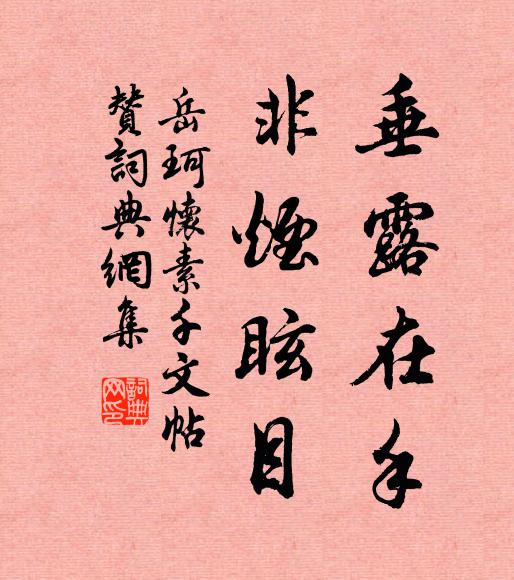 垂露在手
非煙眩目
岳珂懷素千文帖
贊詞典網集
詞典
网印